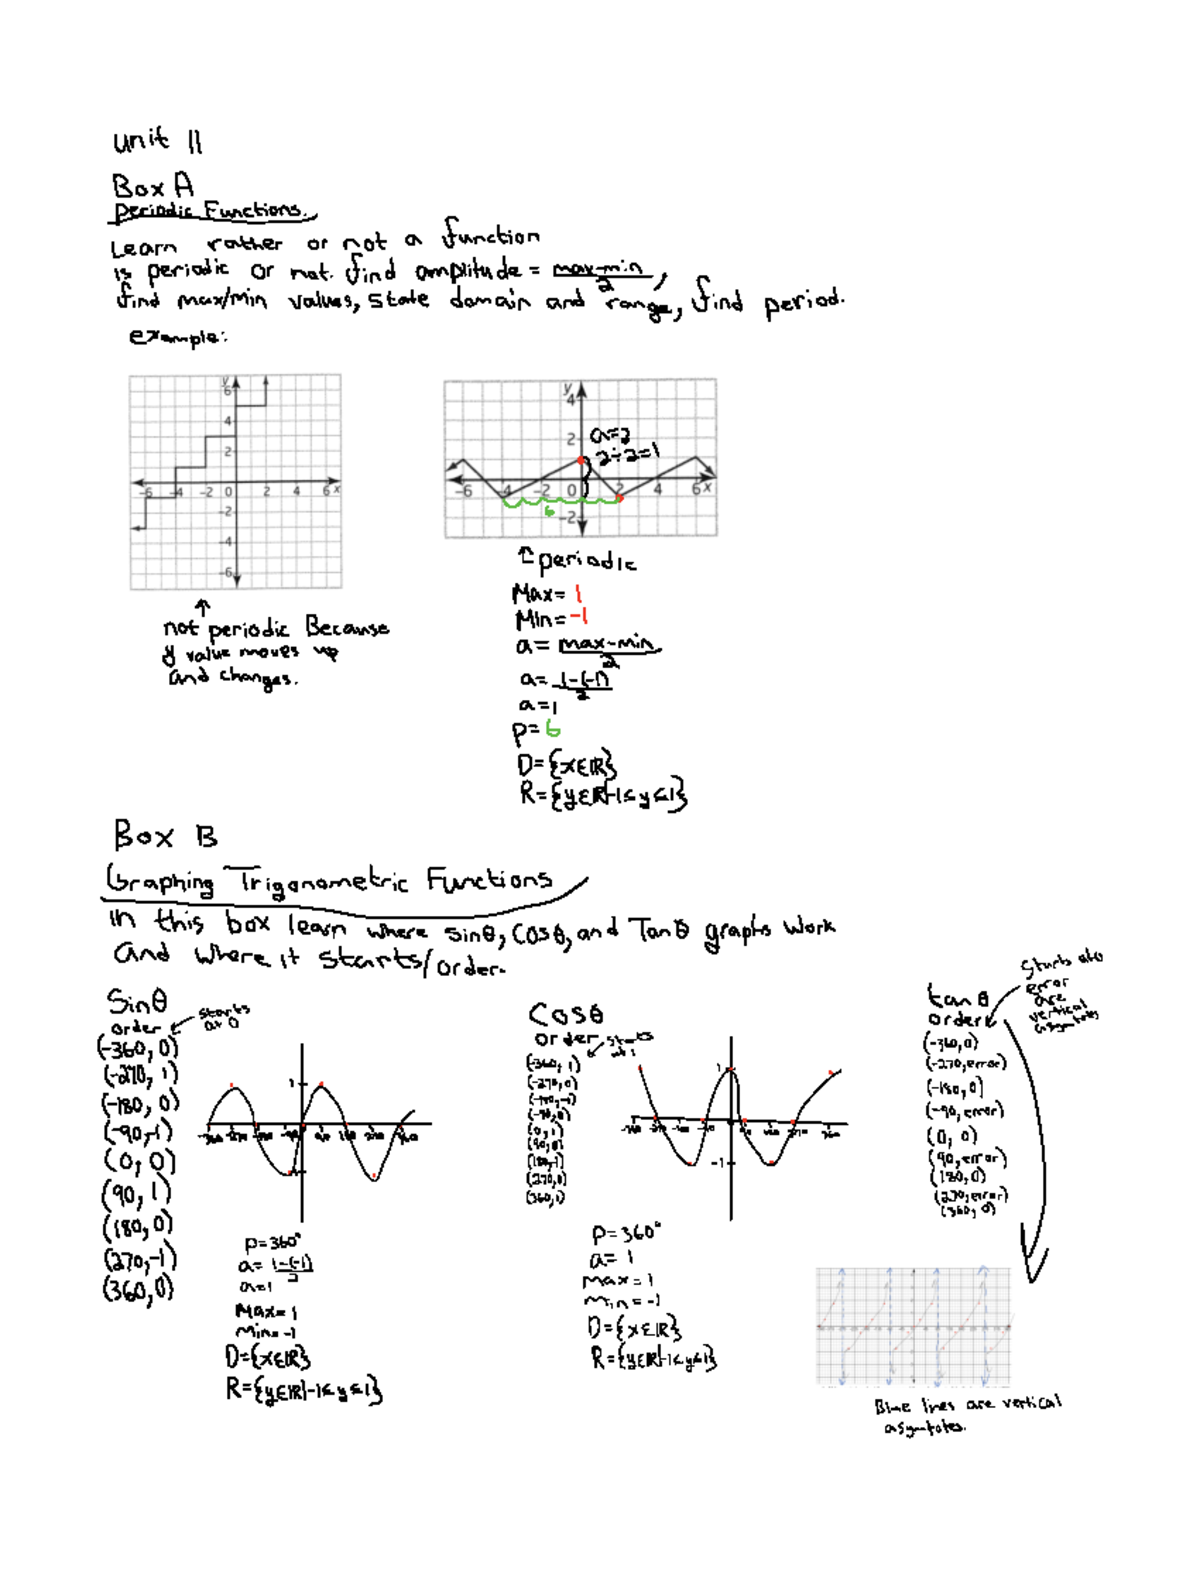 unit 11
Box A
Periodic Functions.
Learn rather or not a function
is periodic or not. find amplitude = max-min/2,
find max/min values, state domain and range, find period.
example:
y
6
4
2
-6 -4 -2 0 2 4 6 x
-2
-4
-6
not periodic Because
y value moves up
and changes.
y
4
2
a=2
2÷2=1
-6 -4 -2 0 2 4 6 x
6
-2
periodic
Max= 1
Min= -1
a= max-min/2
a= 1-(-1)/2
a=1
P= 6
D={x∈ℝ}
R={y∈ℝ|-1≤y≤1}
Box B
Graphing Trigonometric Functions
in this box learn where sinθ, cosθ, and Tanθ graphs work
and where it starts/order.
Sinθ
order
starts
at 0
(-360, 0)
(-270, 1)
(-180, 0)
(-90,-1)
(0, 0)
(90, 1)
(180, 0)
(270,-1)
(360, 0)
1
P=360°
a= 1-(-1)/2
a=1
Max=1
Min=-1
D={x∈ℝ}
R={y∈ℝ|-1≤y≤1}
Cosθ
order
(-360, 1)
(-270,0)
(-180,-1)
(-90,0)
(0, 1)
(90,0)
(180,-1)
(270,0)
(360,1)
1
-1
P=360°
a= 1
max=1
min=-1
D={x∈ℝ}
R={y∈ℝ|-1≤y≤1}
tanθ
order
Starts at 0
error
are
vertical
asymtotes
(-360,0)
(-270,error)
(-180,0)
(-90,error)
(0, 0)
(90,error)
(180,0)
(270,error)
(360, 0)
Blue lines are vertical
asymtotes.